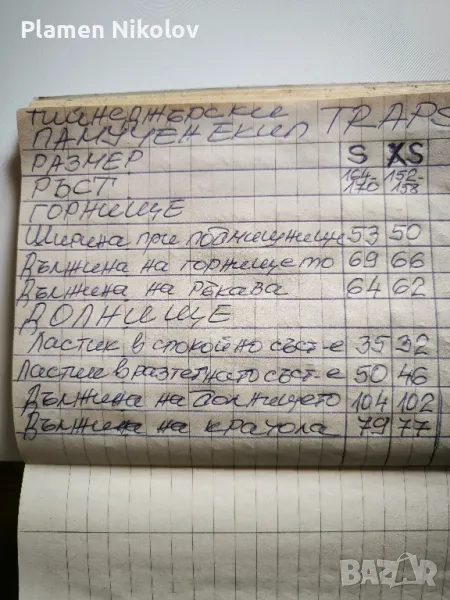 Plamen Nikolov
ТИЙНЕДЖЕРСКИ
ПАМУЧЕН ЕКИП TRAPS
РАЗМЕР S XS
РЪСТ 164-170 152-158
ГОРНИЩЕ
Ширина при подмишници 53 50
Дължина на горнището 69 66
Дължина на ръкава 64 62
ДОЛНИЩЕ
Ластик в спокойно със-е 35 32
Ластик в разтегнато със-е 50 46
Дължина на долнището 104 102
Дължина на крачола 79 77
BAZAR